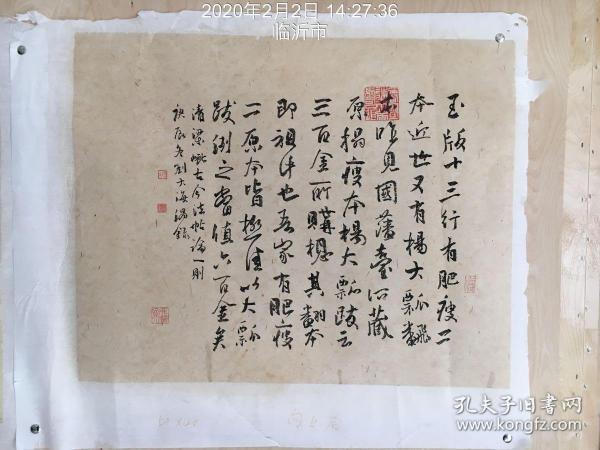 2020年2月2日 14:27:36
临沂市
玉版十三行有肥瘦二
本近世又有楊大瓢翻
本昨見國藩臺所藏
原搨瘦本楊大瓢跋云
三百金所購想其翻本
即祖此也吾家有肥瘦
二原本皆極佳以大瓢
跋例之當值六百金矣
清梁巘古今法帖論一則
庚辰冬刘大海湯錄
孔夫子旧书网
www.kongfz.com